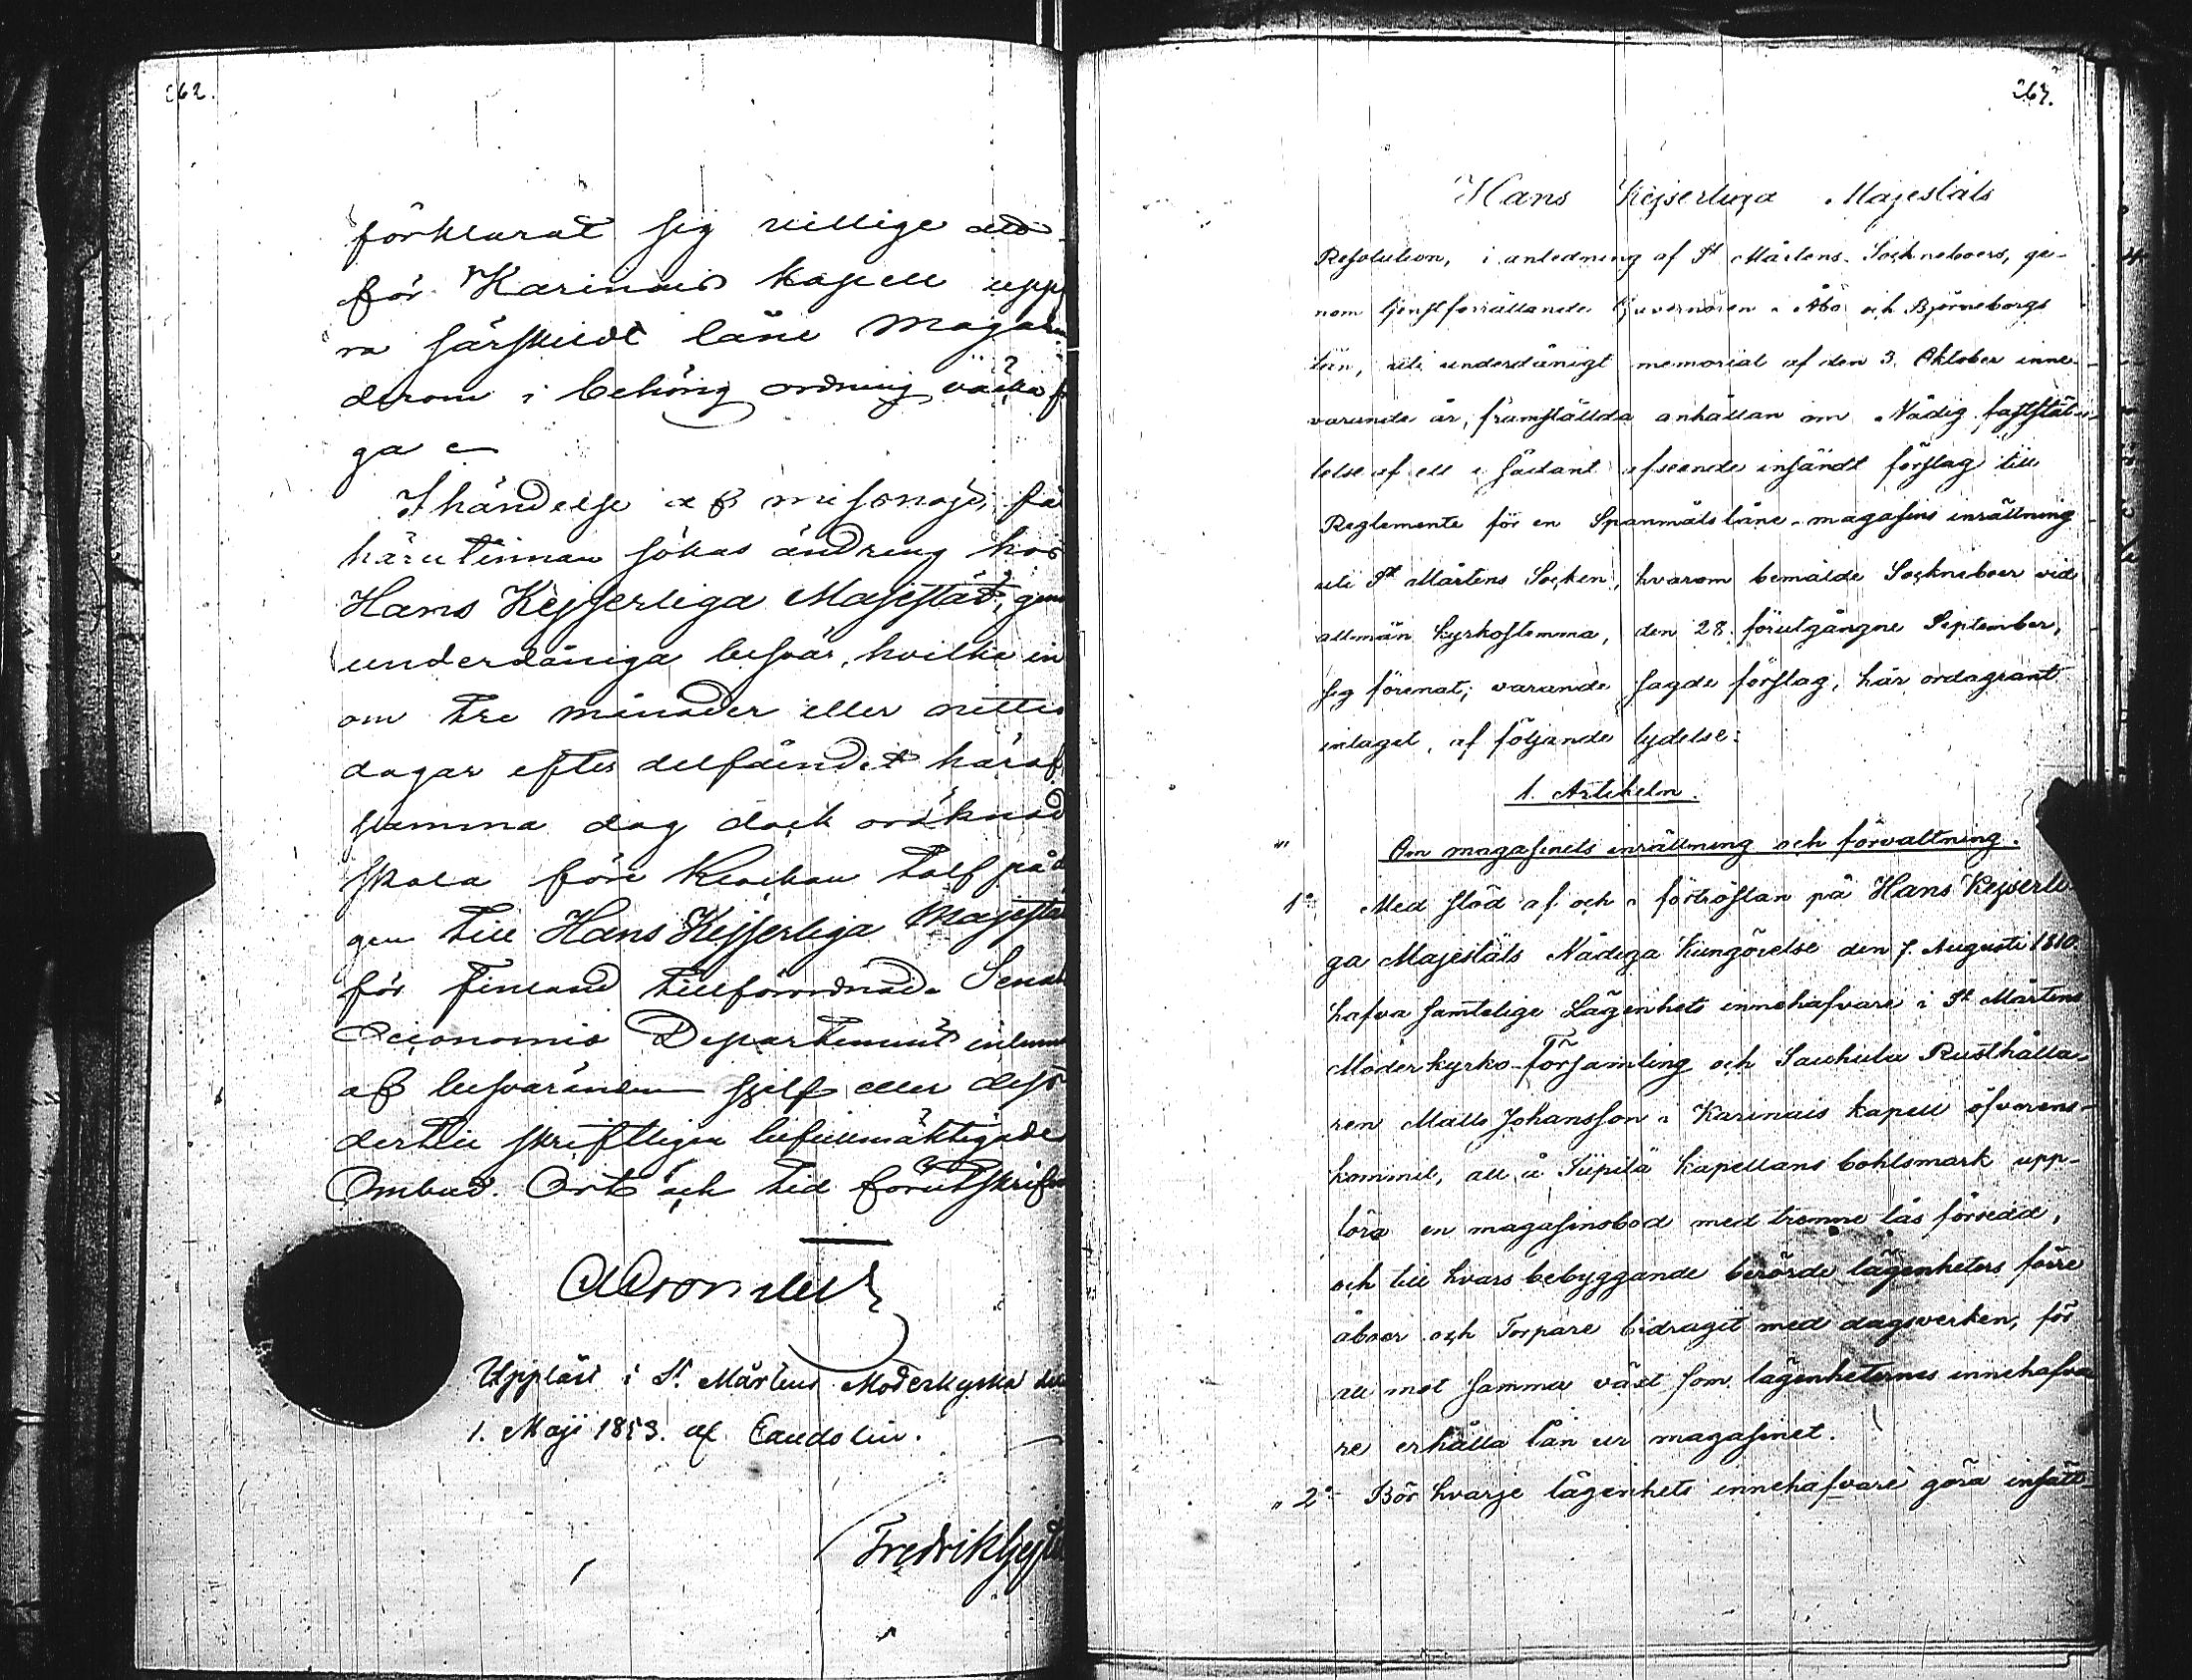 262.
förklarat sig villige att
för Karinais kapell upp
ra särskildt låne Maga
derom i behörig ordning väcka
ga
I händelse af missnöje, få
härutinnan sökas ändring hos
Hans Kejserliga Majestät, gen
underdåniga besvär, hvilka in
om tre månader eller nittio
dagar efter delfåendet häraf
samma dag dock oräknad
skola före klockan tolf på d
gen till Hans Kejserliga Majestät
för Finland tillförordnade Senat
Oeconomie Departement inlem
af besvärsnden sjelf eller dess
dertill skriftligen befullmäktigade
Ombud. Ort och tid förutskrifne
A Cronstedt
Uppläst i St Mårtens Moderkyrka den
1. Maji 1853. af
Fredrik
263.
Hans Kejserliga Majestäts
Resolution, i anledning af St Mårtens Sockneboers, ge-
nom tjenstförrättande Guvernören i Åbo och Björneborgs
län, uti underdånigt memorial af den 3. Oktober inne-
varande år, framställda anhållan om Nådig faststäl-
lelse af ett i sådant afseende insändt förslag till
Reglemente för en Spanmåls låne-magasins inrättning
uti St Mårtens Socken, hvarom bemälde Sockneboer vid
allmän kyrkostemma, den 28. förutgångne September,
sig förenat; varande sagde förslag, här ordagrant
intaget, af följande lydelse:
1. Artikeln.
Om magasinets inrättning och förvaltning.
1° Med stöd af och i förtröstan på Hans Kejserli-
ga Majestäts Nådiga Kungörelse den 7. Augusti 1810.
hafva samtelige Lägenhets innehafvare i St Mårtens
Moderkyrko-Församling och Sauhula Rusthålla-
ren Matts Johansson i Karinais kapell öfverens-
kommit, att å Siipilä Kapellans bohlsmark upp-
föra en magasinsbod med trenne lås försedd,
och till hvars bebyggande berörde lägenheters förre
åboer och Torpare bidragit med dagsverken, för
att mot samma växt som lägenheternes innehafva
re erhålla lån ur magasinet.
" 2° Bör hvarje lägenhets innehafvare göra insätt-